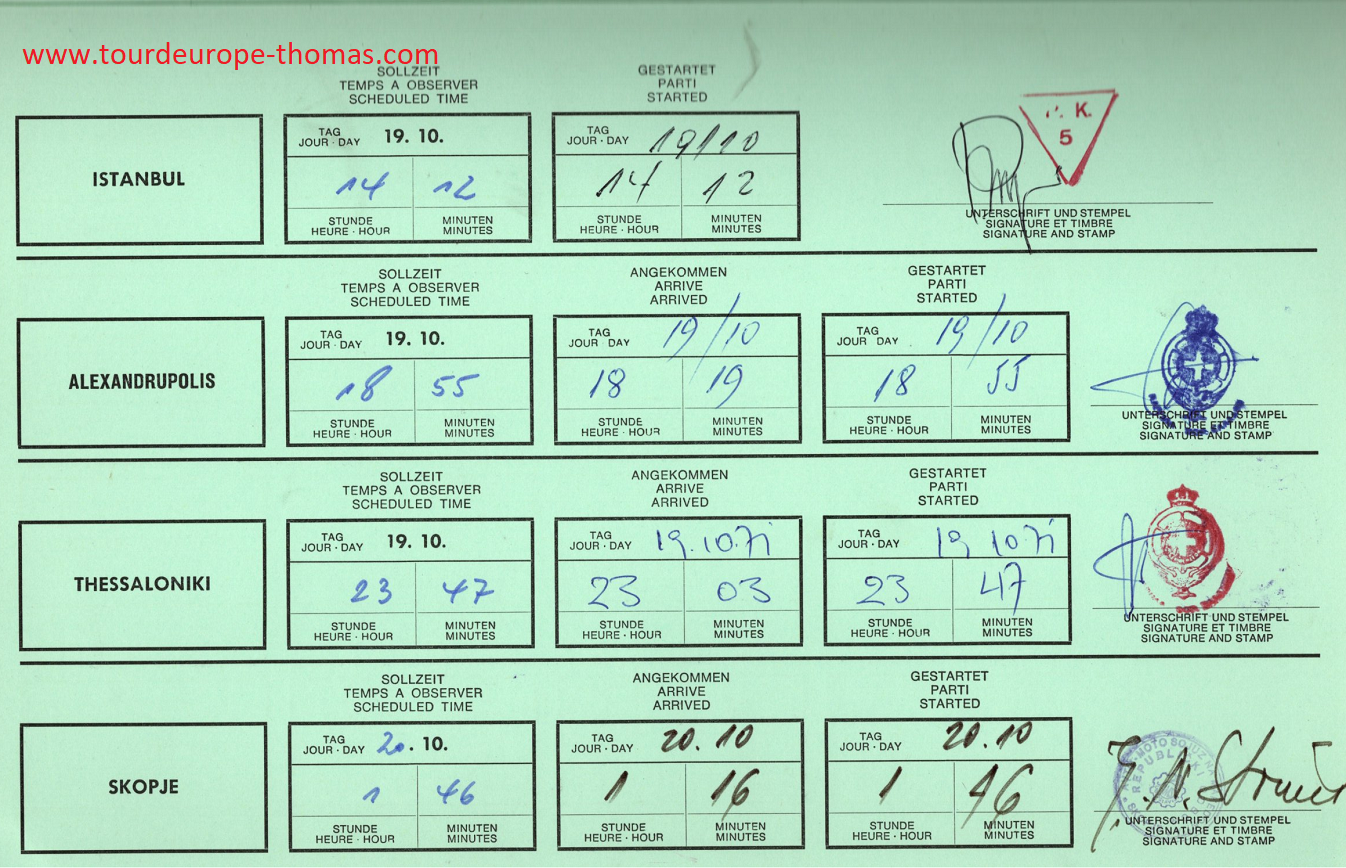 www.tourdeurope-thomas.com
SOLLZEIT
TEMPS A OBSERVER
SCHEDULED TIME
GESTARTET
PARTI
STARTED
ISTANBUL
TAG
JOUR · DAY 19. 10.
14 12
STUNDE
HEURE · HOUR
MINUTEN
MINUTES
TAG
JOUR · DAY 19/10
14 12
STUNDE
HEURE · HOUR
MINUTEN
MINUTES
K.
5
UNTERSCHRIFT UND STEMPEL
SIGNATURE ET TIMBRE
SIGNATURE AND STAMP
SOLLZEIT
TEMPS A OBSERVER
SCHEDULED TIME
ANGEKOMMEN
ARRIVE
ARRIVED
GESTARTET
PARTI
STARTED
ALEXANDRUPOLIS
TAG
JOUR · DAY 19. 10.
18 55
STUNDE
HEURE · HOUR
MINUTEN
MINUTES
TAG
JOUR · DAY 19/10
18 19
STUNDE
HEURE · HOUR
MINUTEN
MINUTES
TAG
JOUR DAY 19/10
18 55
STUNDE
HEURE · HOUR
MINUTEN
MINUTES
UNTERSCHRIFT UND STEMPEL
SIGNATURE ET TIMBRE
SIGNATURE AND STAMP
SOLLZEIT
TEMPS A OBSERVER
SCHEDULED TIME
ANGEKOMMEN
ARRIVE
ARRIVED
GESTARTET
PARTI
STARTED
THESSALONIKI
TAG
JOUR · DAY 19. 10.
23 47
STUNDE
HEURE · HOUR
MINUTEN
MINUTES
TAG
JOUR · DAY 19.10.71
23 03
STUNDE
HEURE · HOUR
MINUTEN
MINUTES
TAG
JOUR · DAY 19 10 71
23 47
STUNDE
HEURE · HOUR
MINUTEN
MINUTES
UNTERSCHRIFT UND STEMPEL
SIGNATURE ET TIMBRE
SIGNATURE AND STAMP
SOLLZEIT
TEMPS A OBSERVER
SCHEDULED TIME
ANGEKOMMEN
ARRIVE
ARRIVED
GESTARTET
PARTI
STARTED
SKOPJE
TAG
JOUR · DAY 20. 10.
1 46
STUNDE
HEURE · HOUR
MINUTEN
MINUTES
TAG
JOUR · DAY 20.10
1 16
STUNDE
HEURE · HOUR
MINUTEN
MINUTES
TAG
JOUR · DAY 20.10
1 46
STUNDE
HEURE · HOUR
MINUTEN
MINUTES
UNTERSCHRIFT UND STEMPEL
SIGNATURE ET TIMBRE
SIGNATURE AND STAMP